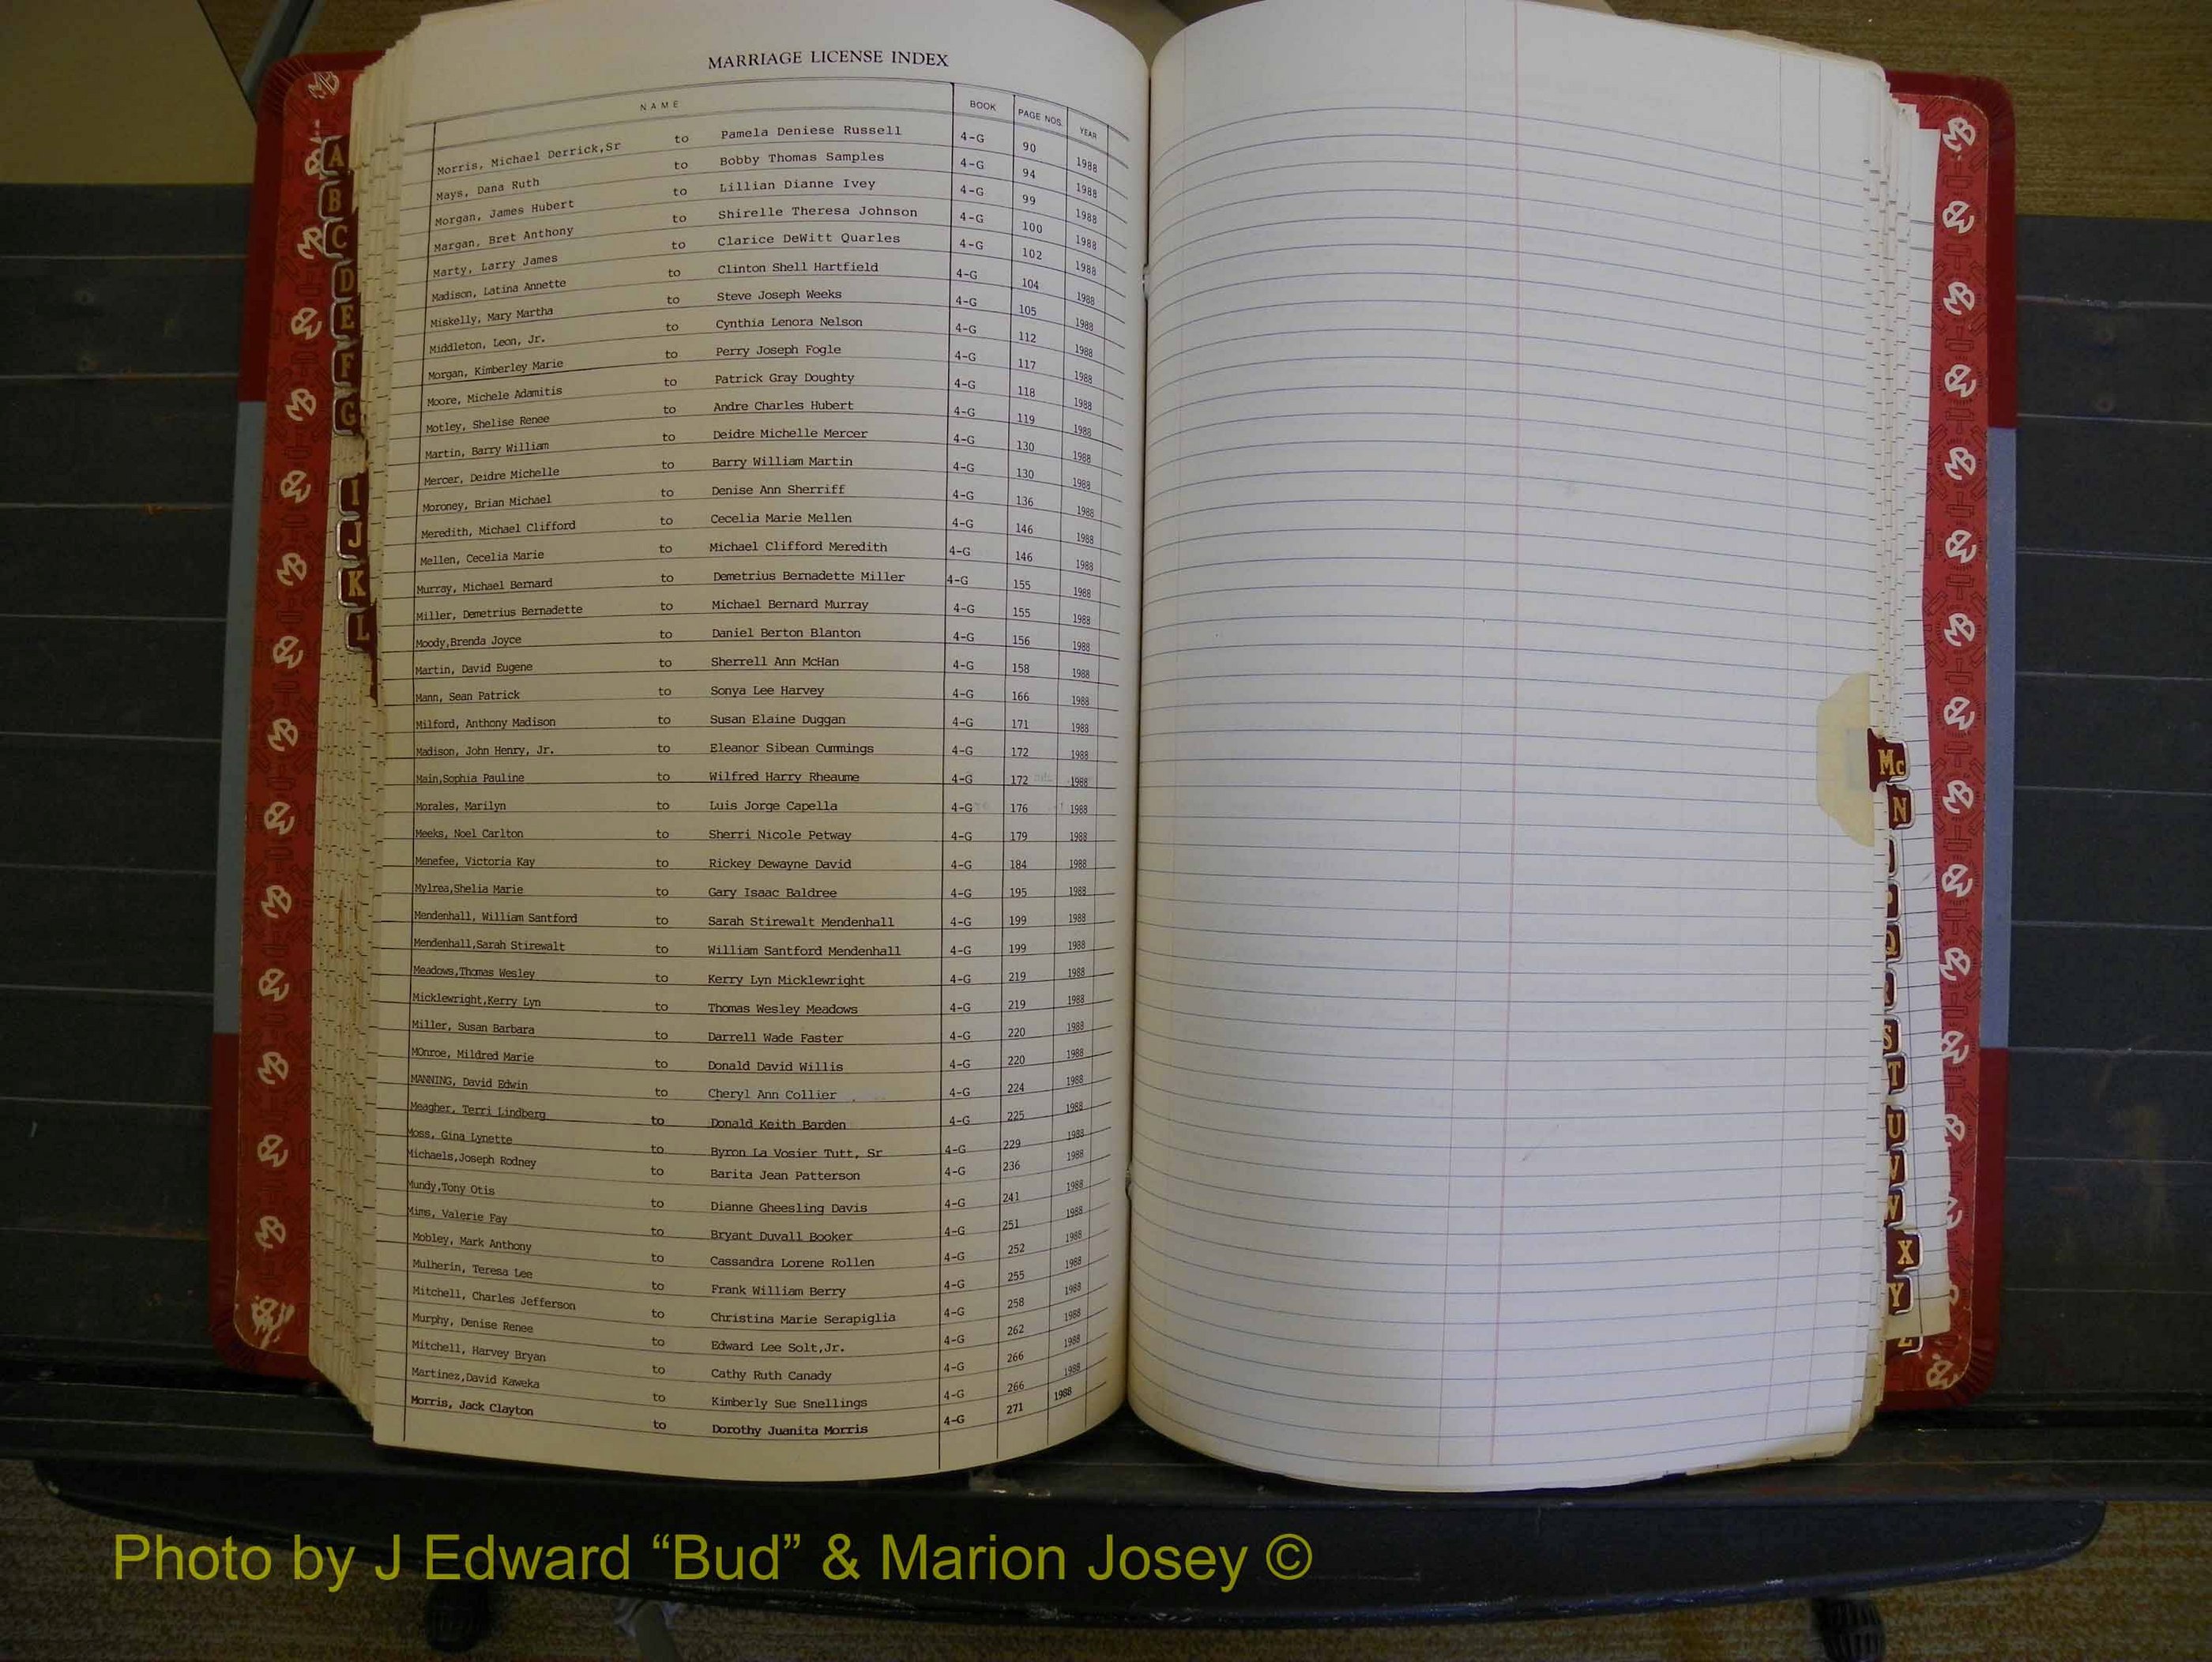 MARRIAGE LICENSE INDEX
NAME BOOK PAGE NOS. YEAR
Morris, Michael Derrick,Sr to Pamela Deniese Russell 4-G 90 1988
Mays, Dana Ruth to Bobby Thomas Samples 4-G 94 1988
Morgan, James Hubert to Lillian Dianne Ivey 4-G 99 1988
Margan, Bret Anthony to Shirelle Theresa Johnson 4-G 100 1988
Marty, Larry James to Clarice DeWitt Quarles 4-G 102 1988
Madison, Latina Annette to Clinton Shell Hartfield 4-G 104 1988
Miskelly, Mary Martha to Steve Joseph Weeks 4-G 105 1988
Middleton, Leon, Jr. to Cynthia Lenora Nelson 4-G 112 1988
Morgan, Kimberley Marie to Perry Joseph Fogle 4-G 117 1988
Moore, Michele Adamitis to Patrick Gray Doughty 4-G 118 1988
Motley, Shelise Renee to Andre Charles Hubert 4-G 119 1988
Martin, Barry William to Deidre Michelle Mercer 4-G 130 1988
Mercer, Deidre Michelle to Barry William Martin 4-G 130 1988
Moroney, Brian Michael to Denise Ann Sherriff 4-G 136 1988
Meredith, Michael Clifford to Cecelia Marie Mellen 4-G 146 1988
Mellen, Cecelia Marie to Michael Clifford Meredith 4-G 146 1988
Murray, Michael Bernard to Demetrius Bernadette Miller 4-G 155 1988
Miller, Demetrius Bernadette to Michael Bernard Murray 4-G 155 1988
Moody,Brenda Joyce to Daniel Berton Blanton 4-G 156 1988
Martin, David Eugene to Sherrell Ann McHan 4-G 158 1988
Mann, Sean Patrick to Sonya Lee Harvey 4-G 166 1988
Milford, Anthony Madison to Susan Elaine Duggan 4-G 171 1988
Madison, John Henry, Jr. to Eleanor Sibean Cummings 4-G 172 1988
Main,Sophia Pauline to Wilfred Harry Rheaume 4-G 172 1988
Morales, Marilyn to Luis Jorge Capella 4-G 176 1988
Meeks, Noel Carlton to Sherri Nicole Petway 4-G 179 1988
Menefee, Victoria Kay to Rickey Dewayne David 4-G 184 1988
Mylrea,Shelia Marie to Gary Isaac Baldree 4-G 195 1988
Mendenhall, William Santford to Sarah Stirewalt Mendenhall 4-G 199 1988
Mendenhall,Sarah Stirewalt to William Santford Mendenhall 4-G 199 1988
Meadows,Thomas Wesley to Kerry Lyn Micklewright 4-G 219 1988
Micklewright,Kerry Lyn to Thomas Wesley Meadows 4-G 219 1988
Miller, Susan Barbara to Darrell Wade Faster 4-G 220 1988
MOnroe, Mildred Marie to Donald David Willis 4-G 220 1988
MANNING, David Edwin to Cheryl Ann Collier 4-G 224 1988
Meagher, Terri Lindberg to Donald Keith Barden 4-G 225 1988
Moss, Gina Lynette to Byron La Vosier Tutt, Sr 4-G 229 1988
Michaels,Joseph Rodney to Barita Jean Patterson 4-G 236 1988
Mundy,Tony Otis to Dianne Gheesling Davis 4-G 241 1988
Mims, Valerie Fay to Bryant Duvall Booker 4-G 251 1988
Mobley, Mark Anthony to Cassandra Lorene Rollen 4-G 252 1988
Mulherin, Teresa Lee to Frank William Berry 4-G 255 1988
Mitchell, Charles Jefferson to Christina Marie Serapiglia 4-G 258 1988
Murphy, Denise Renee to Edward Lee Solt,Jr. 4-G 262 1988
Mitchell, Harvey Bryan to Cathy Ruth Canady 4-G 266 1988
Martinez,David Kaweka to Kimberly Sue Snellings 4-G 266 1988
Morris, Jack Clayton to Dorothy Juanita Morris 4-G 271 1988
A
B
C
D
E
F
G
I
J
K
L
Mc
N
Q
S
T
U
V
W
X
Y
Z
Photo by J Edward “Bud” & Marion Josey ©